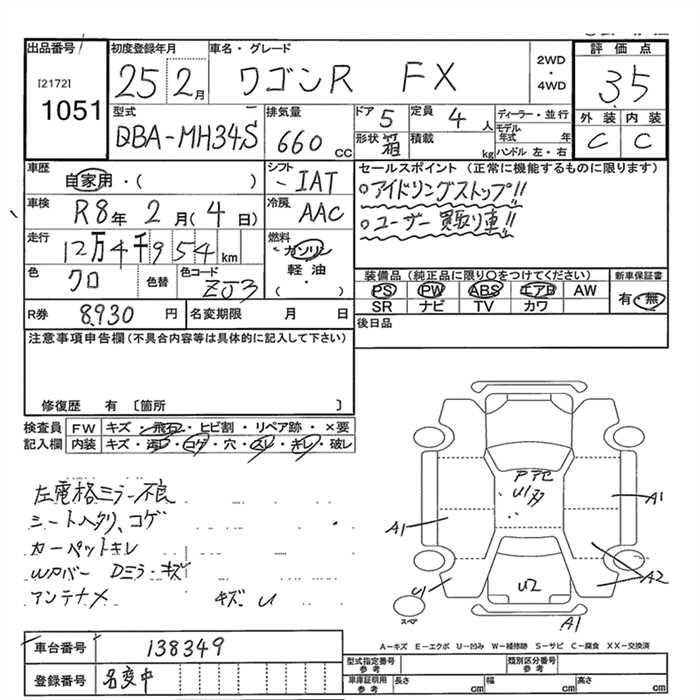 出品番号
[2172]
1051
初度登録年月
25 2月
車名・グレード
ワゴンR FX
2WD
・
4WD
評価点
3.5
外装 内装
C C
型式
QBA-MH34S
排気量
660 CC
ドア 5
定員 4人
形状 箱
積載 kg
ディーラー・並行
モデル年式 年
ハンドル 左・右
車歴
自家用・( )
シフト
IAT
車検
R8年 2月(4日)
冷房
AAC
走行
12万4千954 km
燃料
ガソリン
軽油
( )
色
クロ
色替
色コード
ZJ3
R券 8930 円
名変期限 月 日
セールスポイント (正常に機能するものに限ります)
○アイドリングストップ!!
○ユーザー買取り車!!
装備品 (純正品に限り○をつけてください)
PS PW ABS エアB AW
SR ナビ TV カワ
新車保証書
有・無
後日品
注意事項申告欄(不具合内容等は具体的に記入して下さい)
修復歴 有 〔箇所 〕
検査員記入欄
FW キズ・飛石・ヒビ割・リペア跡・×要
内装 キズ・汚レ・コゲ・穴・スレ・キレ・破レ
左電格ミラー不良
シートヘタリ、コゲ
カーペットキレ
Wカバー Dミラーキズ
アンテナメ キズ U
アセ
U1
A1
A1
A2
U1
U2
A1
スペア
A-キズ E-エクボ U-凹み W-補修跡 S-サビ C-腐食 XX-交換済
車台番号 138349
登録番号 名変中
型式指定番号
参考
類別区分番号
参考
車庫証明用
参考
長さ cm 幅 cm 高さ cm